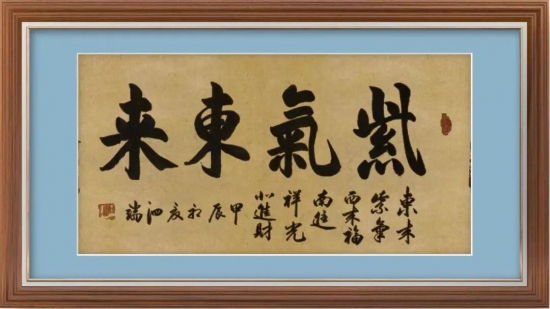 紫氣東来
東来
紫氣
西来福
南進
祥光
北進財
甲辰初夏泗瑞